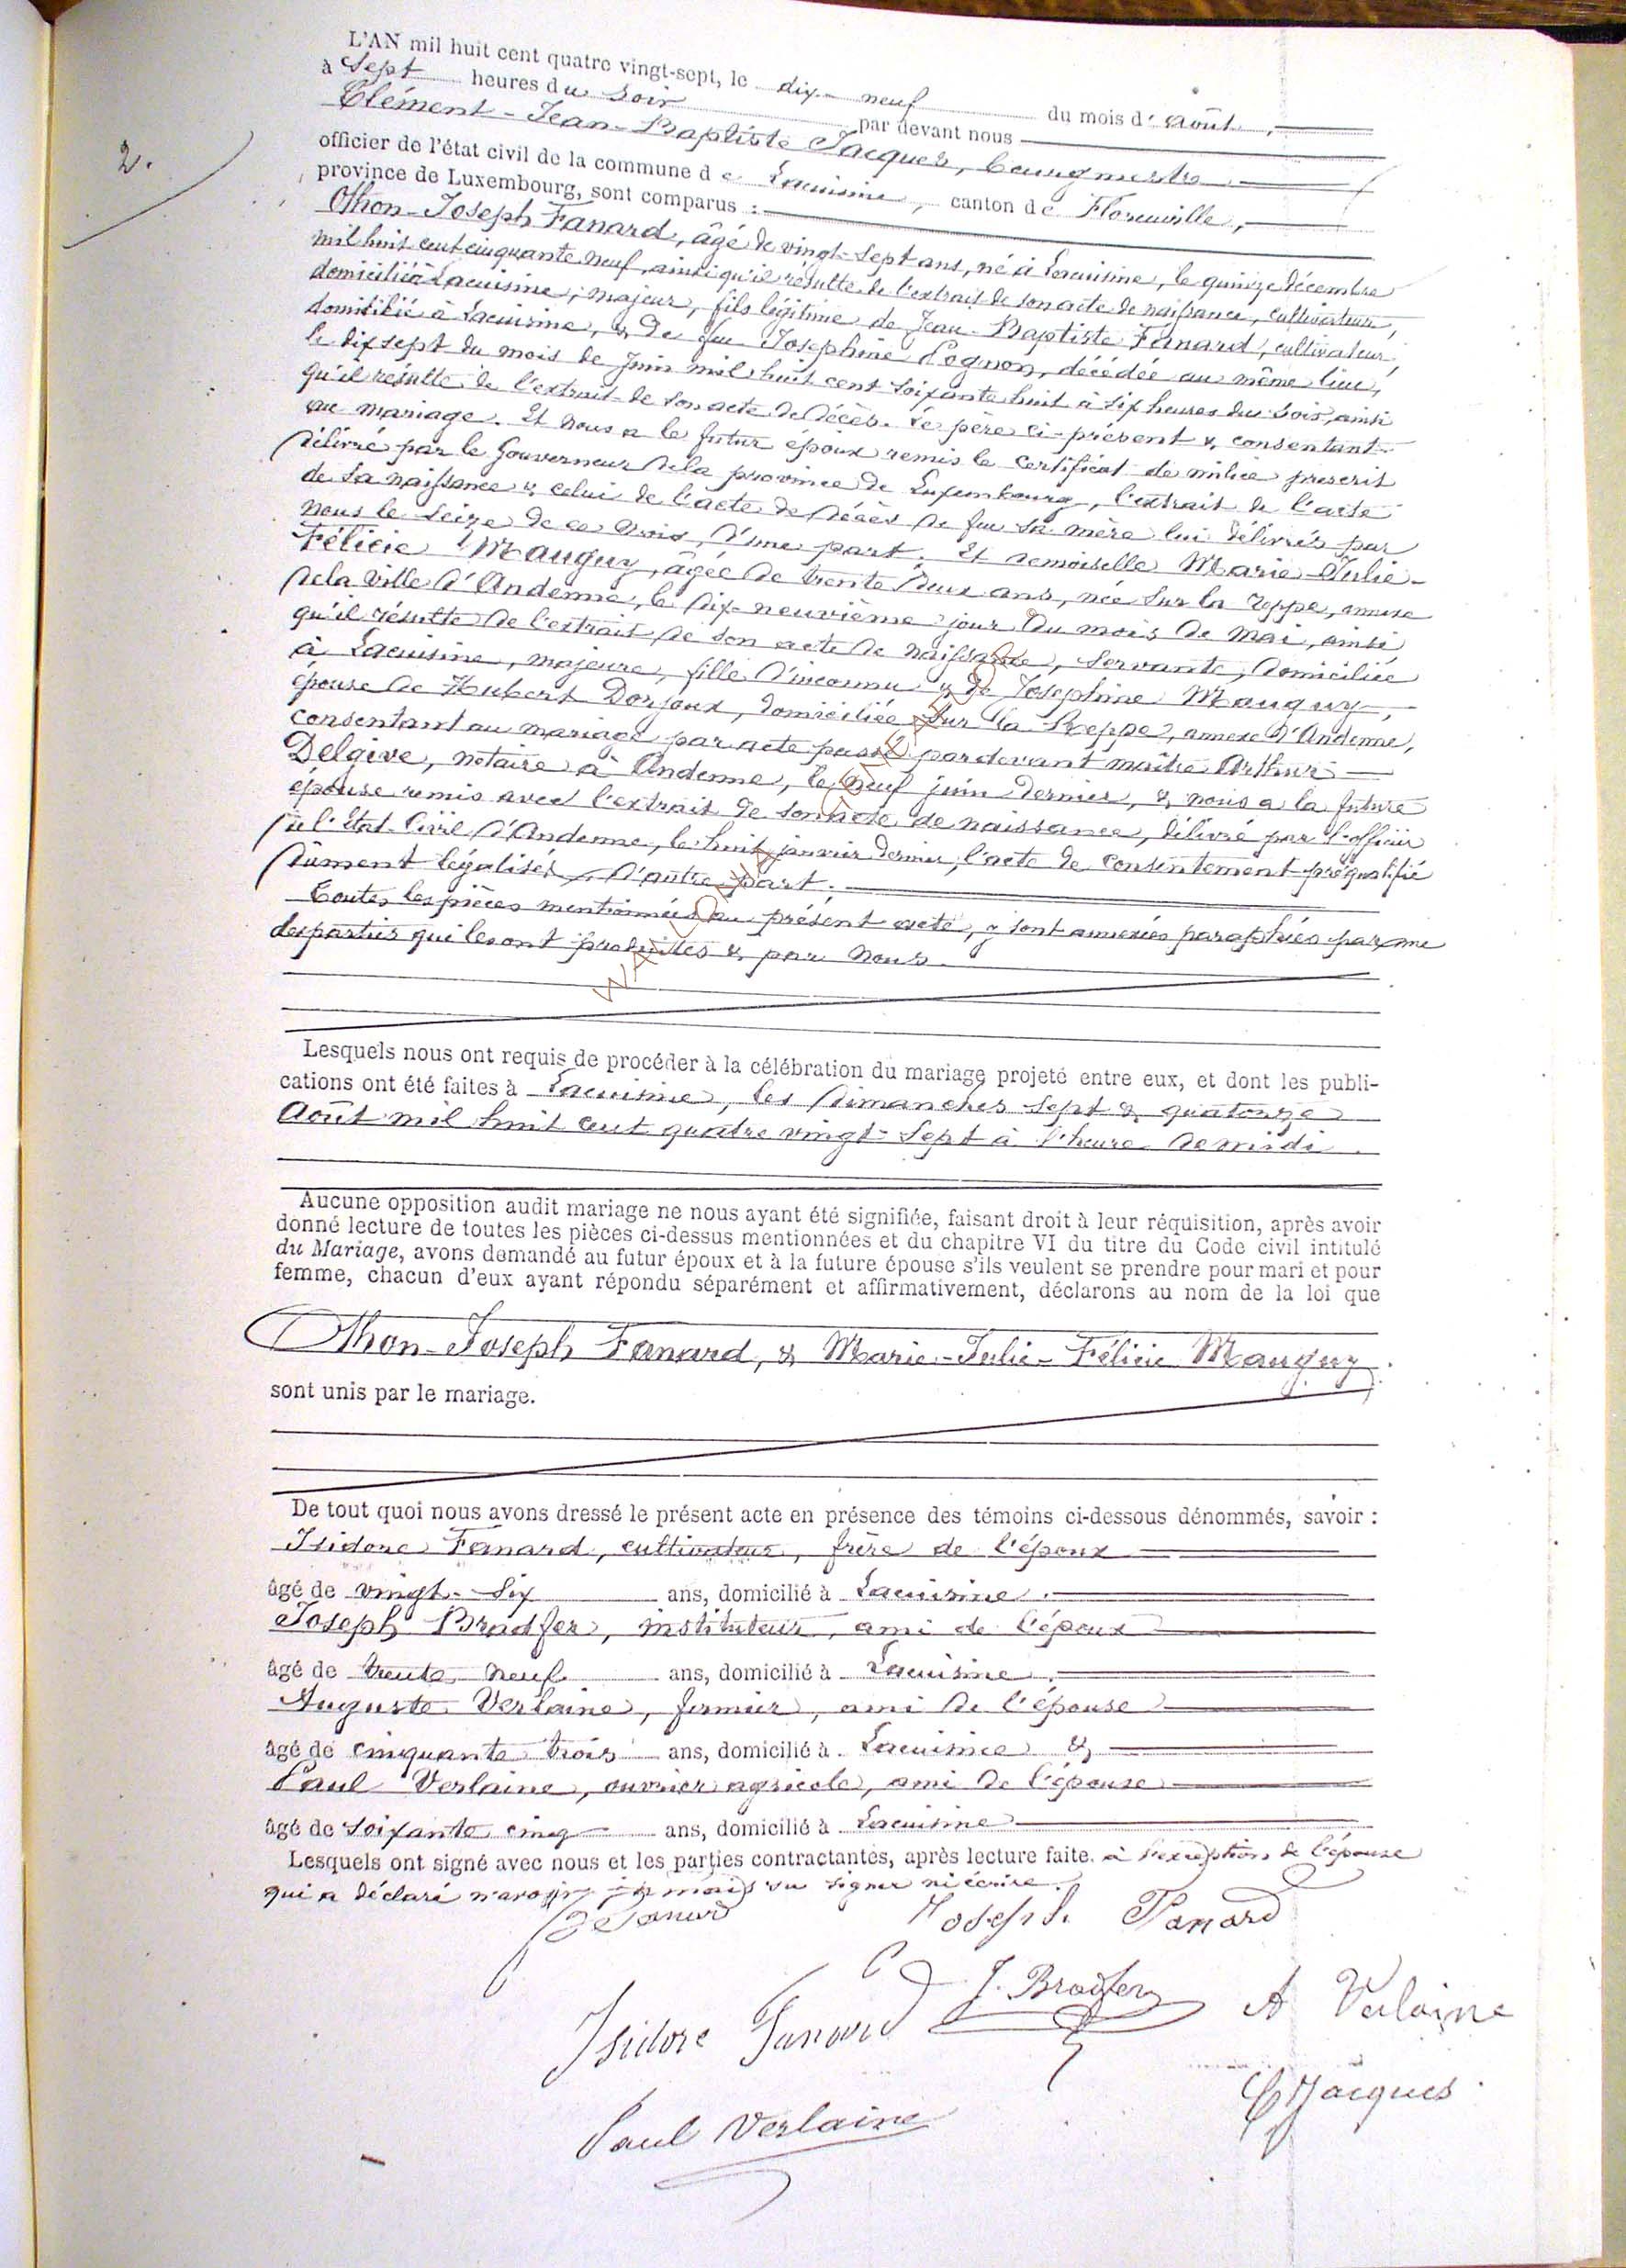 L'AN mil huit cent quatre vingt-sept, le dix-neuf du mois d'août,
à Sept heures du soir par devant nous
Clément-Jean-Baptiste Jacques, bourgmestre
officier de l'état civil de la commune de Lacuisine, canton de Florenville,
province de Luxembourg, sont comparus :
2.
Othon-Joseph Fanard, âgé de vingt-sept ans, né à Lacuisine, le quinze décembre
mil huit cent cinquante neuf, ainsi qu'il résulte de l'extrait de son acte de naissance, cultivateur,
domicilié à Lacuisine, majeur, fils légitime de Jean-Baptiste Fanard, cultivateur,
domicilié à Lacuisine, & de feu Josephine Pognon, décédée au même lieu,
le dix sept du mois de juin mil huit cent soixante huit à six heures du soir, ainsi
qu'il résulte de l'extrait de son acte de décès. Le père ci-présent & consentant
au mariage. Et nous a le futur époux remis le certificat de milice prescrit
délivré par le Gouverneur de la province de Luxembourg, l'extrait de l'acte
de sa naissance & celui de l'acte de décès de feu sa mère lui délivrés par
nous le seize de ce mois, d'une part. Et demoiselle Marie-Julie-
Félicie Mauguy, âgée de trente deux ans, née sur la Reppe, annexe
de la ville d'Andenne, le dix-neuvième jour du mois de mai, ainsi
qu'il résulte de l'extrait de son acte de naissance, servante, domiciliée
à Lacuisine, majeure, fille d'inconnu & de Josephine Mauguy,
épouse de Hubert Dorjoux, domiciliée sur la Reppe, annexe d'Andenne,
consentant au mariage par acte passé pardevant maître Arthur
Delgive, notaire à Andenne, le neuf juin dernier, & nous a la future
épouse remis avec l'extrait de son acte de naissance, délivré par l'officier
de l'Etat-Civil d'Andenne, le huit janvier dernier, l'acte de consentement préqualifié
dûment légalisés, d'autre part.
Toutes les pièces mentionnées au présent acte, y sont annexées paraphées par une
des parties qui les ont produites & par nous.
Lesquels nous ont requis de procéder à la célébration du mariage projeté entre eux, et dont les publi-
cations ont été faites à Lacuisine, les dimanches sept & quatorze
Août mil huit cent quatre vingt-sept à l'heure de midi.
Aucune opposition audit mariage ne nous ayant été signifiée, faisant droit à leur réquisition, après avoir
donné lecture de toutes les pièces ci-dessus mentionnées et du chapitre VI du titre du Code civil intitulé
du Mariage, avons demandé au futur époux et à la future épouse s'ils veulent se prendre pour mari et pour
femme, chacun d'eux ayant répondu séparément et affirmativement, déclarons au nom de la loi que
Othon-Joseph Fanard, & Marie-Julie-Félicie Mauguy.
sont unis par le mariage.
De tout quoi nous avons dressé le présent acte en présence des témoins ci-dessous dénommés, savoir :
Isidore Fanard, cultivateur, frère de l'époux
âgé de vingt-six ans, domicilié à Lacuisine.
Joseph Bradfer, instituteur, ami de l'époux
âgé de trente neuf ans, domicilié à Lacuisine.
Auguste Verlaine, fermier, ami de l'épouse
âgé de cinquante trois ans, domicilié à Lacuisine &
Paul Verlaine, ouvrier agricole, ami de l'épouse
âgé de soixante cinq ans, domicilié à Lacuisine
Lesquels ont signé avec nous et les parties contractantes, après lecture faite. à l'exception de l'épouse
qui a déclaré n'avoir jamais su signer ni écrire.
Joseph Fanard
Isidore Fanard J. Bradfer A Verlaine
C Jacques
Paul Verlaine